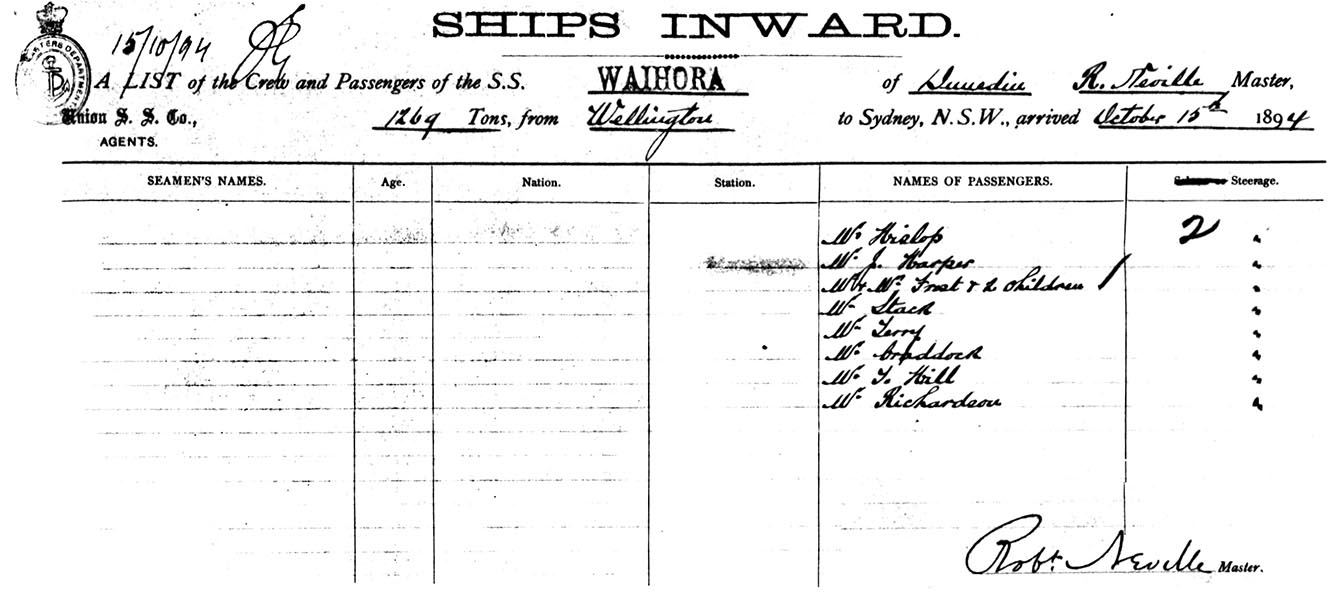 SHIPS INWARD.
15/10/94
A LIST of the Crew and Passengers of the S.S. WAIHORA of Dunedin R. Neville Master,
Union S. S. Co., 1269 Tons, from Wellington to Sydney, N.S.W., arrived October 15th 1894
AGENTS.
SEAMEN'S NAMES. Age. Nation. Station. NAMES OF PASSENGERS. Steerage.
Mr Hislop 2 "
Mr J. Harper "
Mr & Mrs Frost & 2 Children / "
Mr Stack "
Mr Terry "
Mr Craddock "
Mr T. Hill "
Mr Richardson "
Robt. Neville Master.